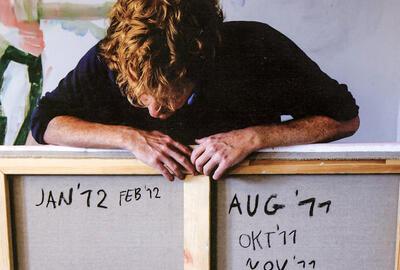 JAN '12 FEB '12
AUG '11
OKT '11
NOV '11